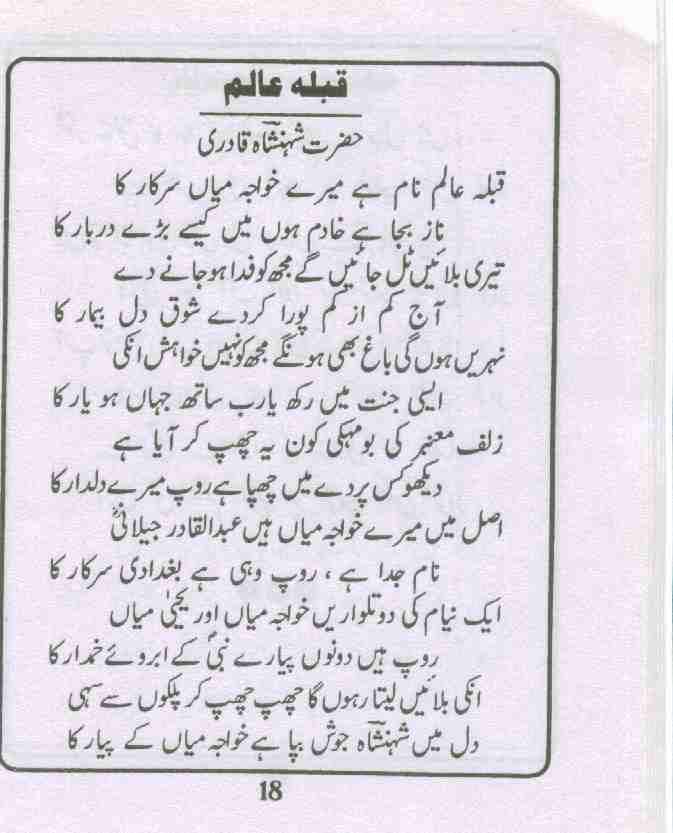 قبلہ عالم
حضرت شہنشاہ قادری
قبلہ عالم نام ہے میرے خواجہ میاں سرکار کا
ناز بجا ہے خادم ہوں میں کیسے بڑے دربار کا
تیری بلائیں ٹل جائیں گے مجھ کو فدا ہوجانے دے
آج کم از کم پورا کردے شوق دل بیمار کا
نہریں ہوں گی باغ بھی ہونگے مجھ کو نہیں خواہش انکی
ایسی جنت میں رکھ یارب ساتھ جہاں ہو یار کا
زلف معنبر کی بو مہکی کون یہ چھپ کر آیا ہے
دیکھو کس پردے میں چھپا ہے روپ میرے دلدار کا
اصل میں میرے خواجہ میاں ہیں عبدالقادر جیلانیؓ
نام جدا ہے ، روپ وہی ہے بغدادی سرکار کا
ایک نیام کی دو تلواریں خواجہ میاں اور یحیٰی میاں
روپ ہیں دونوں پیارے نبیؐ کے ابروئے خمدار کا
انکی بلائیں لیتا رہوں گا چھپ چھپ کر پلکوں سے سہی
دل میں شہنشاہ جوش بپا ہے خواجہ میاں کے پیار کا
18